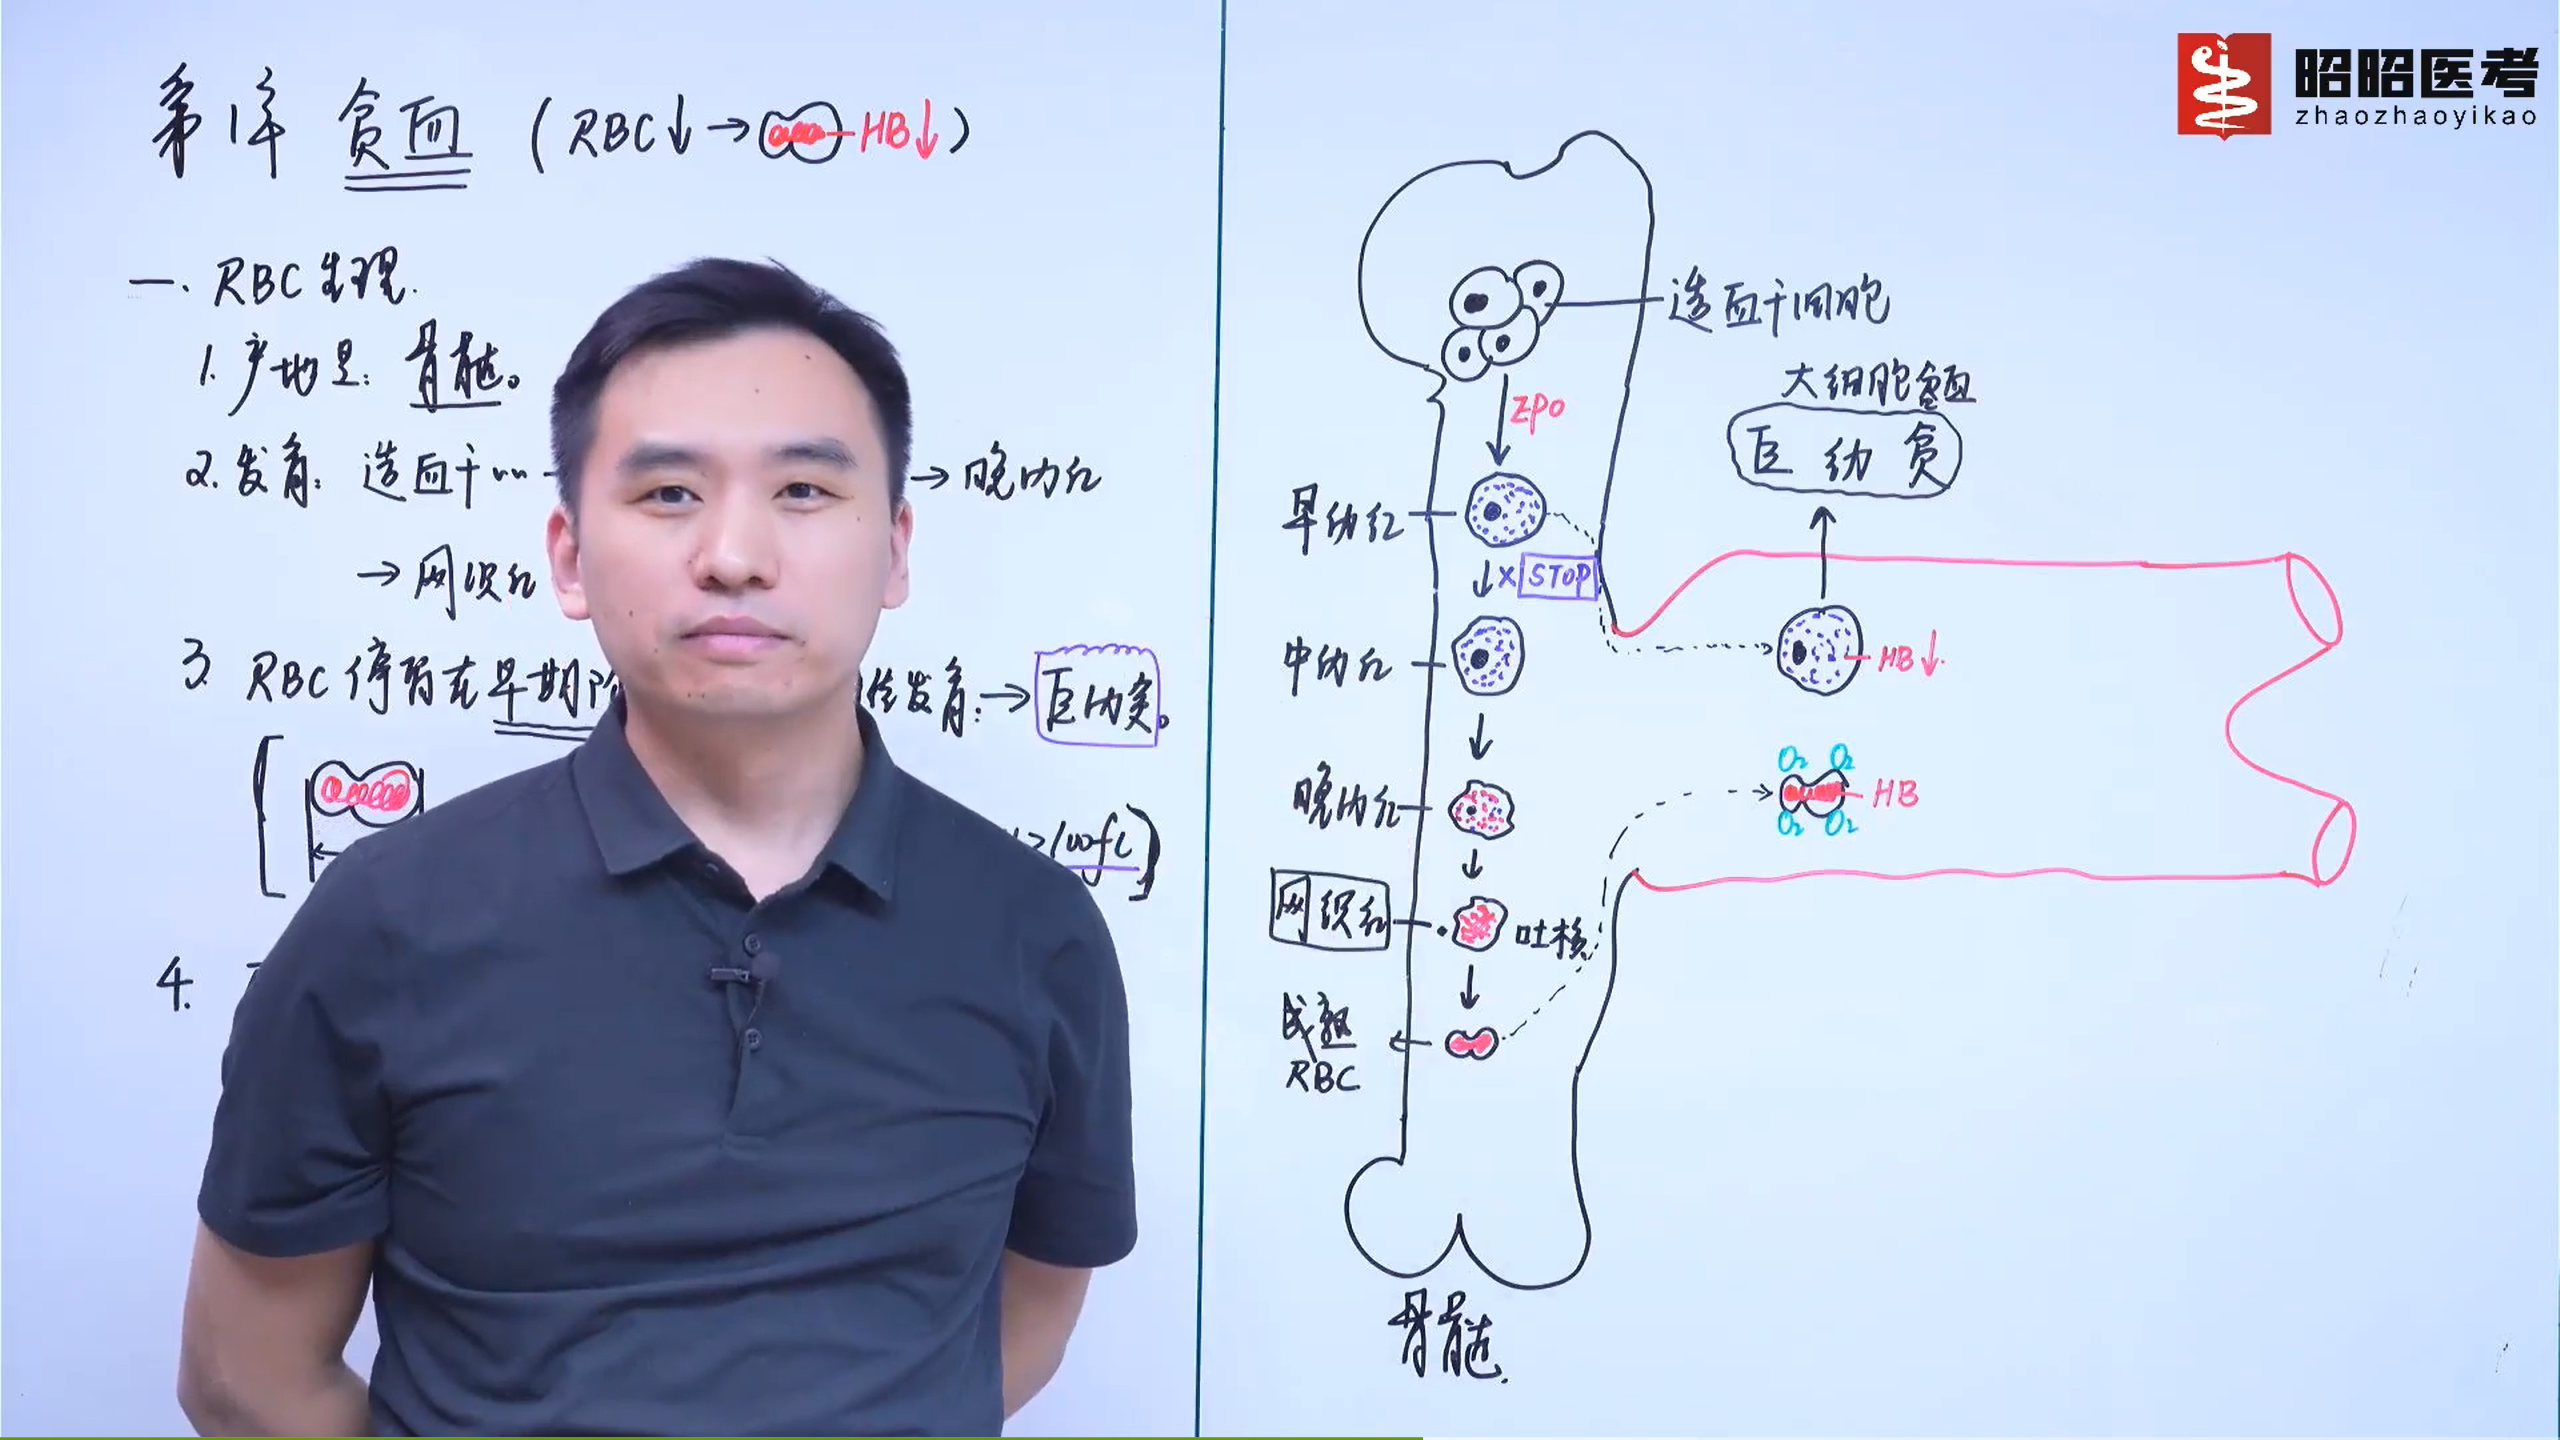 第1章 贫血 (RBC↓→ HB↓)
一. RBC生理.
1. 产地是: 骨髓。
2. 发育: 造血干 → 晚幼红
→ 网织红
3. RBC停留在早期阶 发育: → 巨幼贫。
>100fl)
4.
昭昭医考
zhaozhaoyikao
造血干细胞
大细胞贫血
巨幼贫
EPO
早幼红
×STOP
中幼红
HB↓
晚幼红
O2 O2
HB
O2 O2
网织红
吐核
成熟
RBC
骨髓.